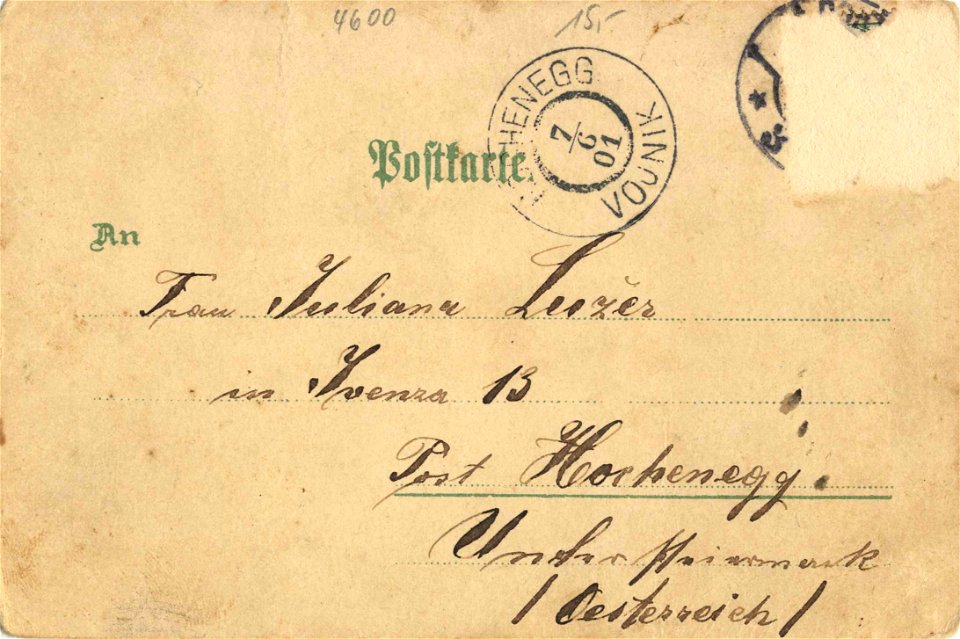 4600 15.-
HENEGG
VOJNIK
7/6 01
Postkarte.
An
Frau Juliana Ložer
in Ivenza 13
Post Hochenegg.
Untersteiermark
/ Oesterreich /